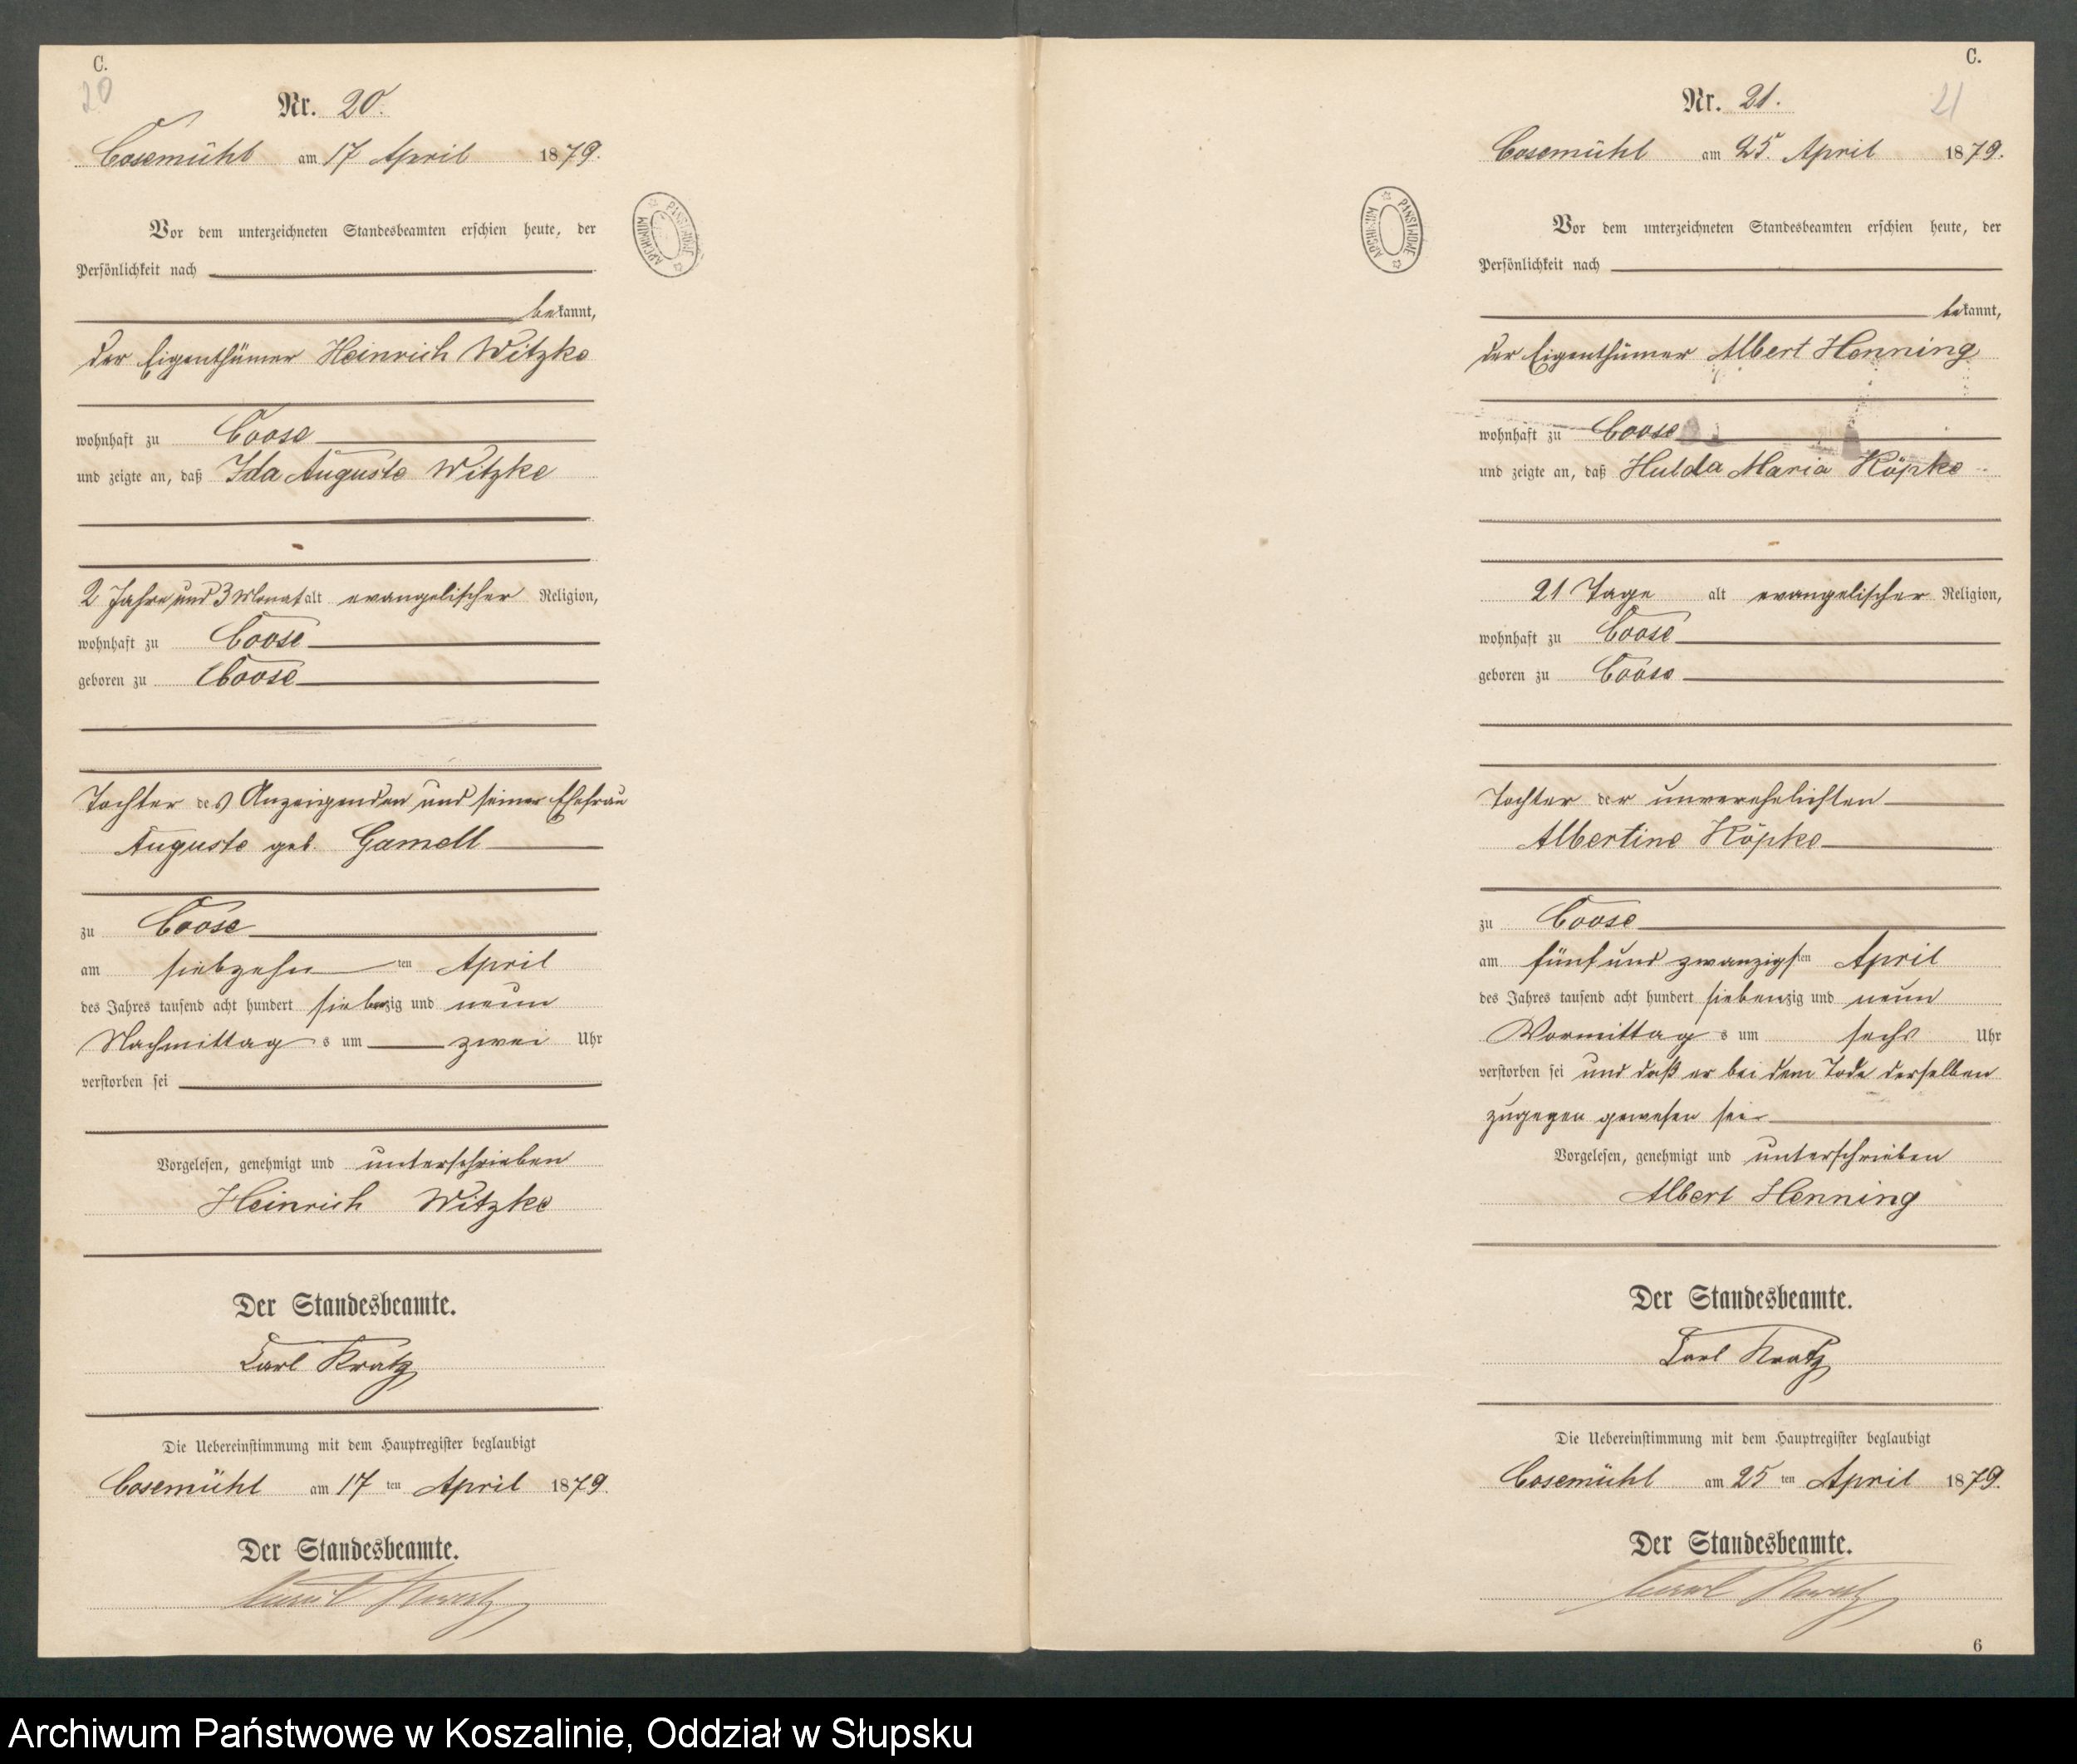 C.
20
Nr. 20.
Cosemühl am 17 April 1879.
Vor dem unterzeichneten Standesbeamten erschien heute, der
Persönlichkeit nach
bekannt,
der Eigenthümer Heinrich Witzke
wohnhaft zu Coose
und zeigte an, daß Ida Auguste Witzke
2 Jahre und 3 Monat alt evangelischer Religion,
wohnhaft zu Coose
geboren zu Coose
Tochter des Anzeigenden und seiner Ehefrau
Auguste geb. Gamell
zu Coose
am siebzehnten April
des Jahres tausend acht hundert siebenzig und neun
Nachmittags um zwei Uhr
verstorben sei
Vorgelesen, genehmigt und unterschrieben
Heinrich Witzke
Der Standesbeamte.
Carl Kratz
Die Uebereinstimmung mit dem Hauptregister beglaubigt
Cosemühl am 17 ten April 1879.
Der Standesbeamte.
Carl Kratz
ARCHIWUM PAŃSTWOWE
C.
21
Nr. 21.
Cosemühl am 25. April 1879.
Vor dem unterzeichneten Standesbeamten erschien heute, der
Persönlichkeit nach
bekannt,
der Eigenthümer Albert Henning
wohnhaft zu Coose
und zeigte an, daß Hulda Maria Köpke
21 Tage alt evangelischer Religion,
wohnhaft zu Coose
geboren zu Coose
Tochter der unverehelichten
Albertine Köpke
zu Coose
am fünf und zwanzigsten April
des Jahres tausend acht hundert siebenzig und neun
Vormittags um sechs Uhr
verstorben sei und daß er bei dem Tode derselben
zugegen gewesen sei
Vorgelesen, genehmigt und unterschrieben
Albert Henning
Der Standesbeamte.
Carl Kratz
Die Uebereinstimmung mit dem Hauptregister beglaubigt
Cosemühl am 25 ten April 1879.
Der Standesbeamte.
Carl Kratz
6
Archiwum Państwowe w Koszalinie, Oddział w Słupsku